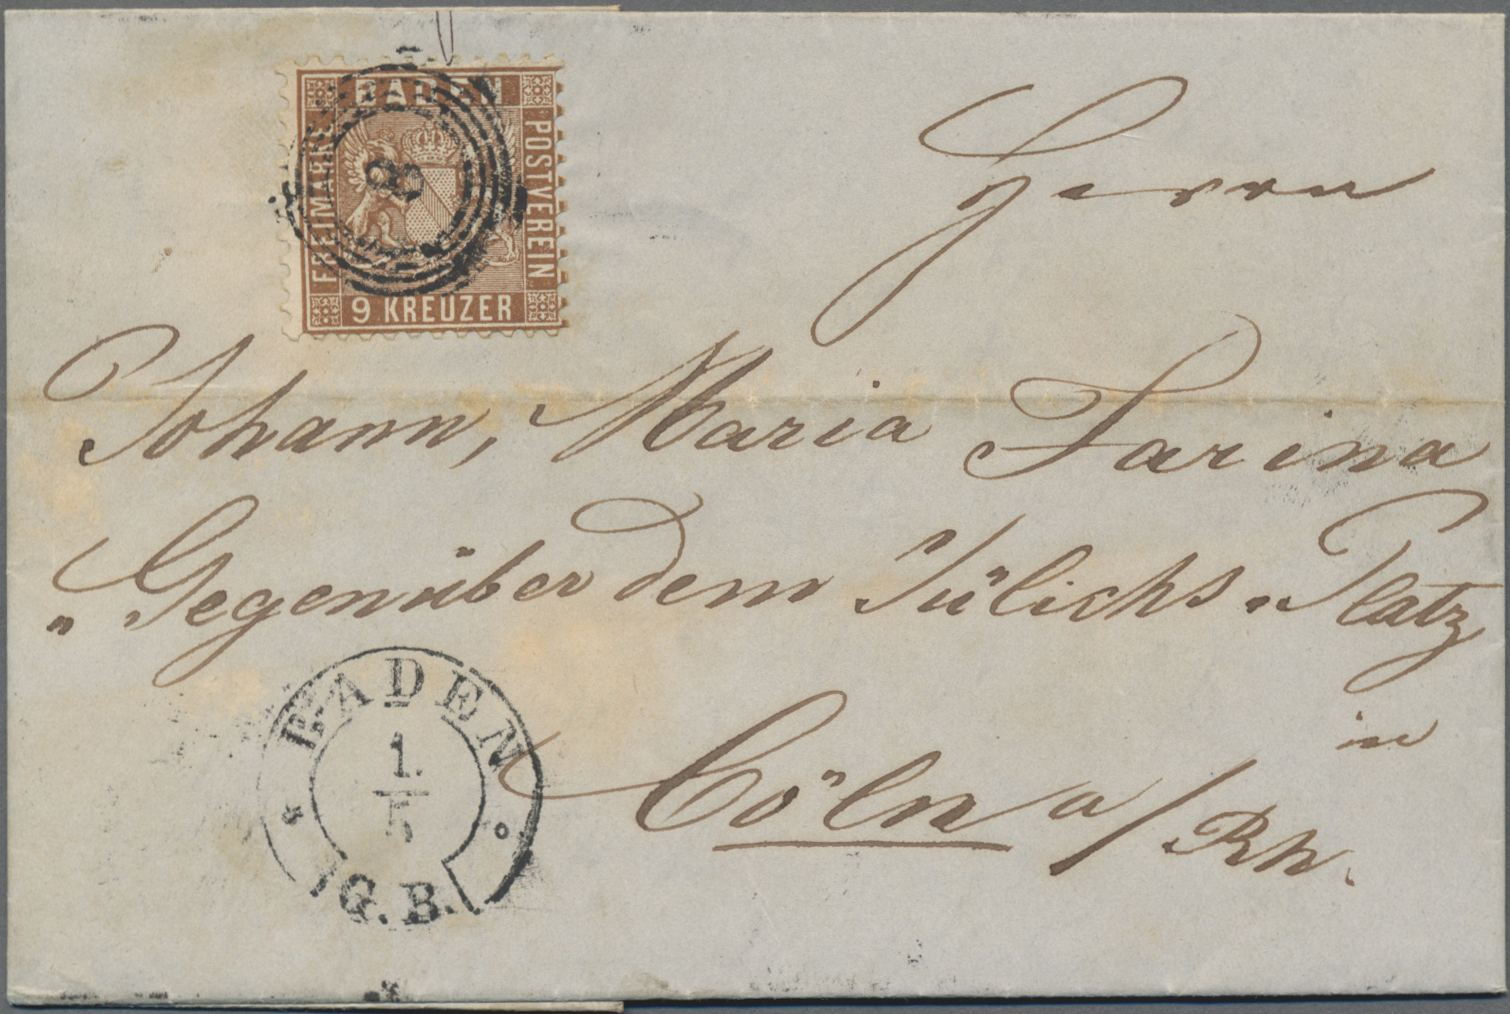 BADEN
FREIMARKE
POSTVEREIN
9 KREUZER
8
Herrn
Johann, Maria Farina
"Gegenüber dem Jülichs" Platz
in
Cöln a/Rh.
BADEN
1.
5
G.B.